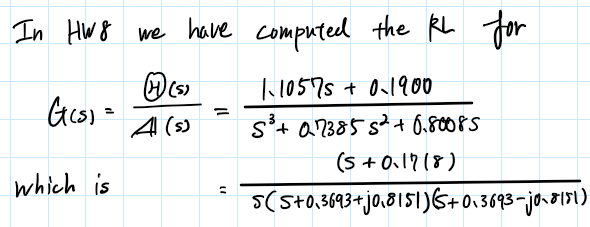 In HW8 we have computed the RL for
G(s) = Ⓗ(s) / A(s) = 1.1057s + 0.1900 / s³ + 0.7385 s² + 0.8008s
which is = (s + 0.1718) / s(s+0.3693+j0.8151)(s+0.3693-j0.8151)